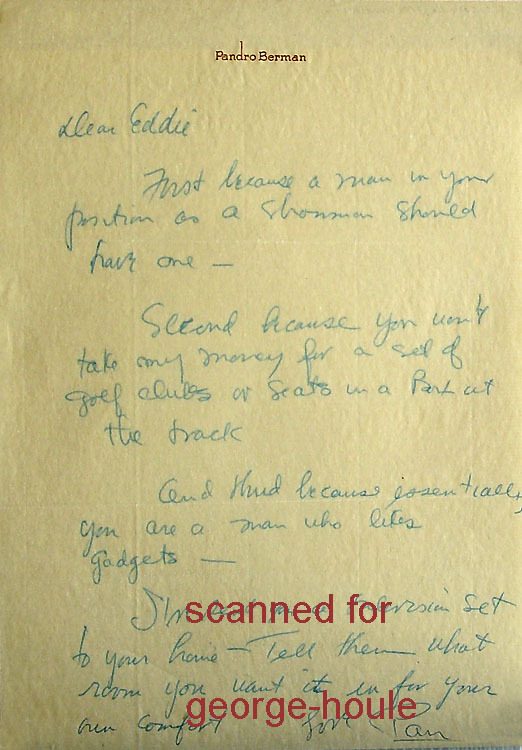 Pandro Berman
Dear Eddie
First because a man in your
position as a showman should
have one —
Second because you won't
take my money for a set of
golf clubs or seats in a Box at
the track
And third because essentially
you are a man who likes
gadgets —
a television set
scanned for
to your home — Tell them what
room you want it in for your
george-houle
own comfort Love Pan